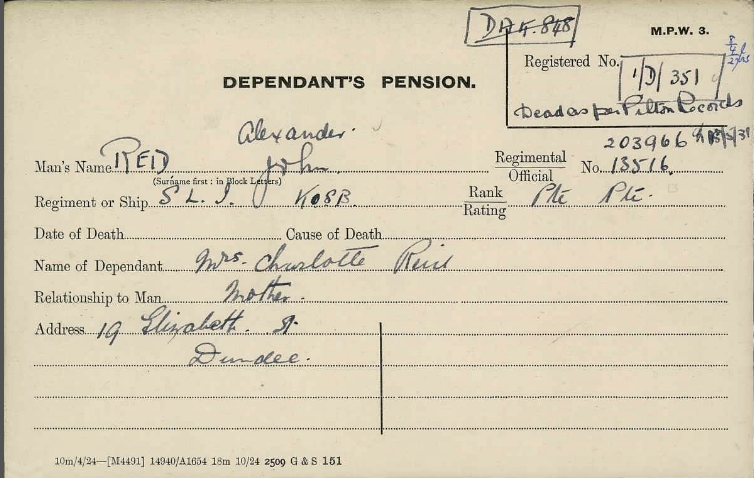 DA4.848
M.P.W. 3.
Registered No. 1/D/351
DEPENDANT'S PENSION.
Dead as per Pilton Records
Alexander.
203966
Man's Name REID John Regimental Official No. 13516.
(Surname first: in Block Letters)
Regiment or Ship S L. I. KOSB. Rank Rating Pte Pte.
Date of Death Cause of Death
Name of Dependant Mrs. Charlotte Reid
Relationship to Man Mother.
Address 19 Elizabeth. St.
Dundee.
10m/4/24—[M4491] 14940/A1654 18m 10/24 2509 G & S 151